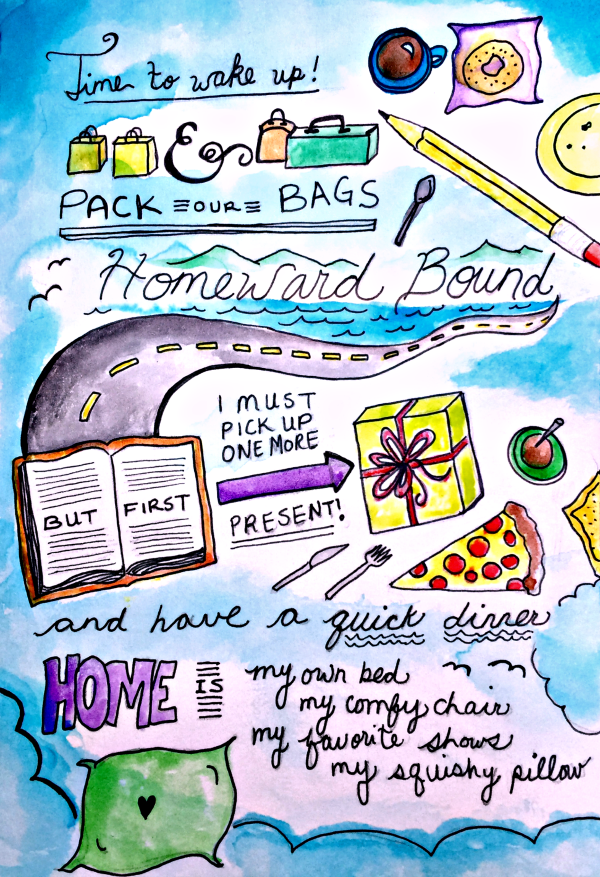 Time to wake up!
&
PACK OUR BAGS
Homeward Bound
I MUST
PICK UP
ONE MORE
PRESENT!
BUT FIRST
and have a quick dinner
HOME IS
my own bed
my comfy chair
my favorite shows
my squishy pillow